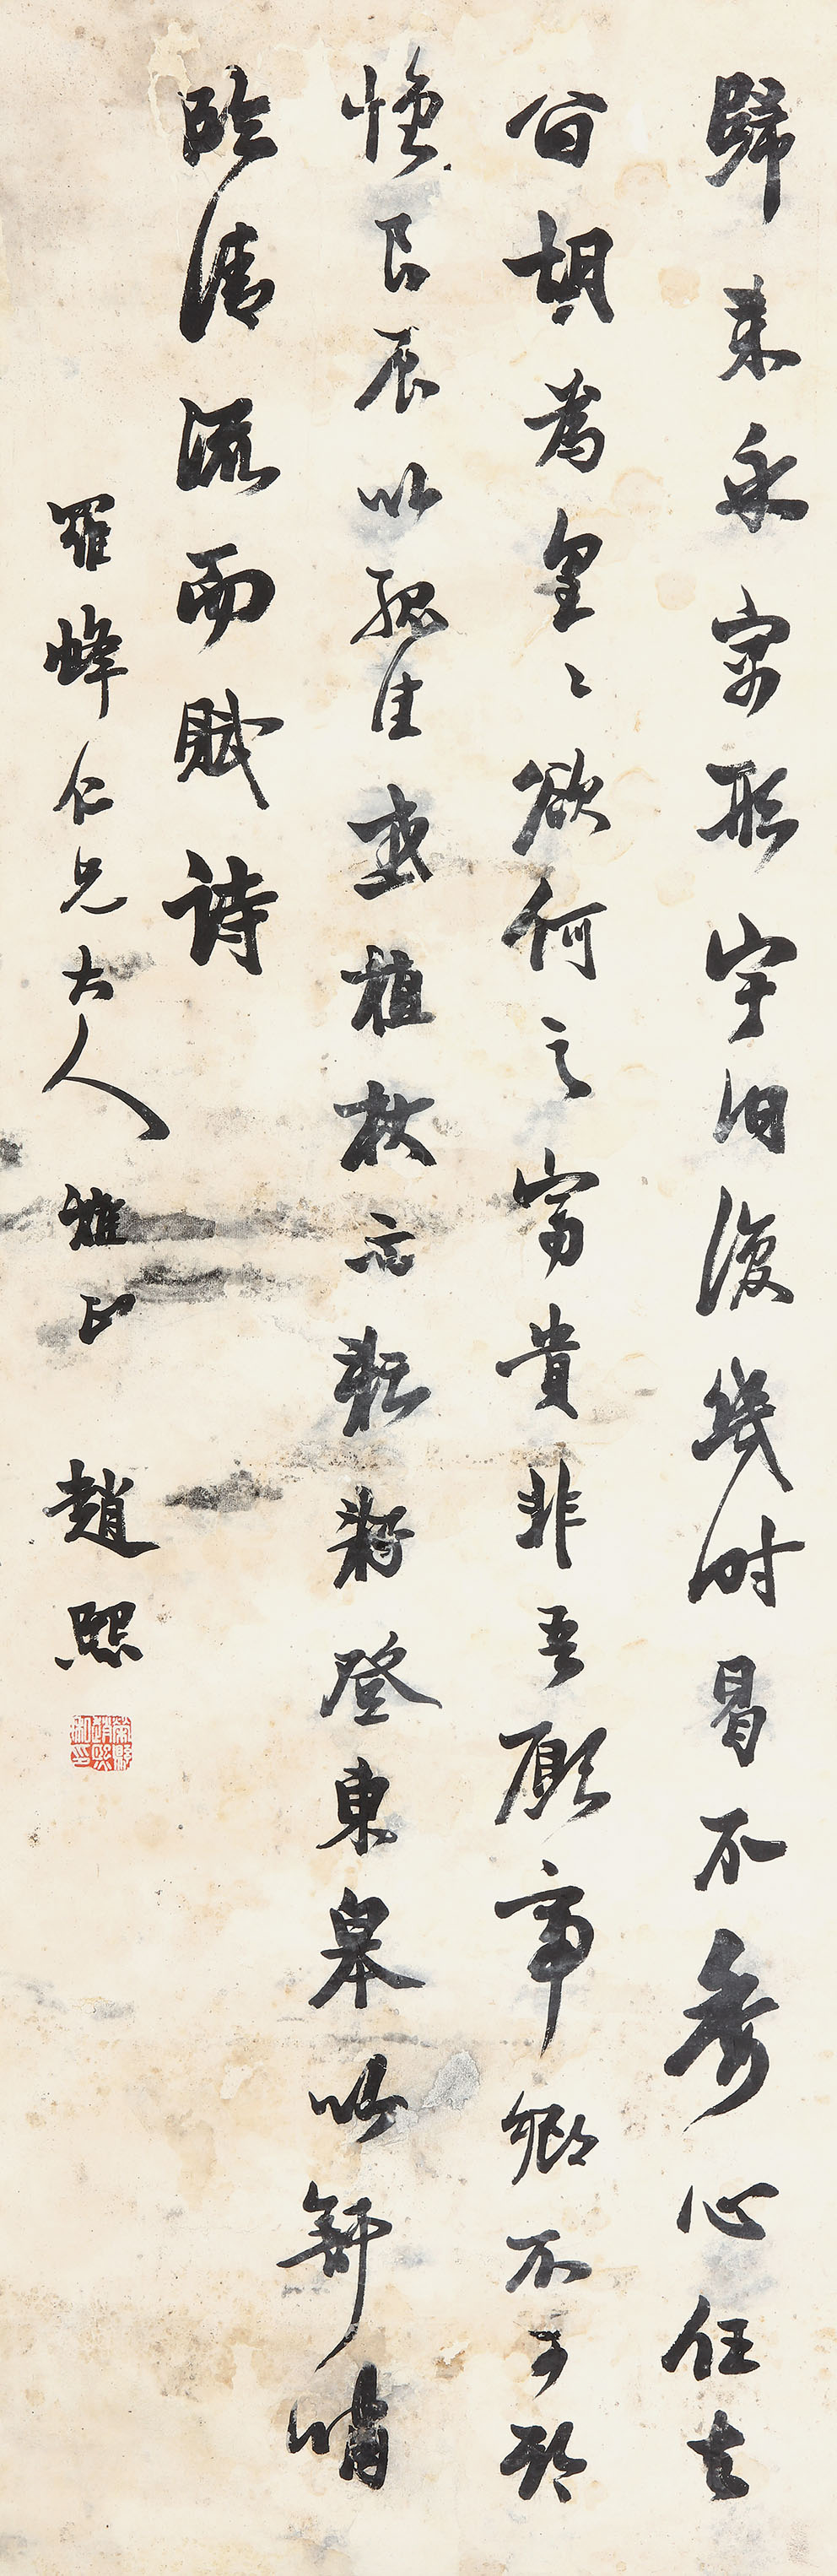 歸来永寓形宇内復幾时曷不委心任去
留胡為皇〻欲何之富貴非吾願帝鄉不可期
懷良辰以孤往或植杖而耘耔登東皋以舒嘯
臨清流而賦詩
羅峰仁兄大人雅正 趙熙
榮縣趙熙私印